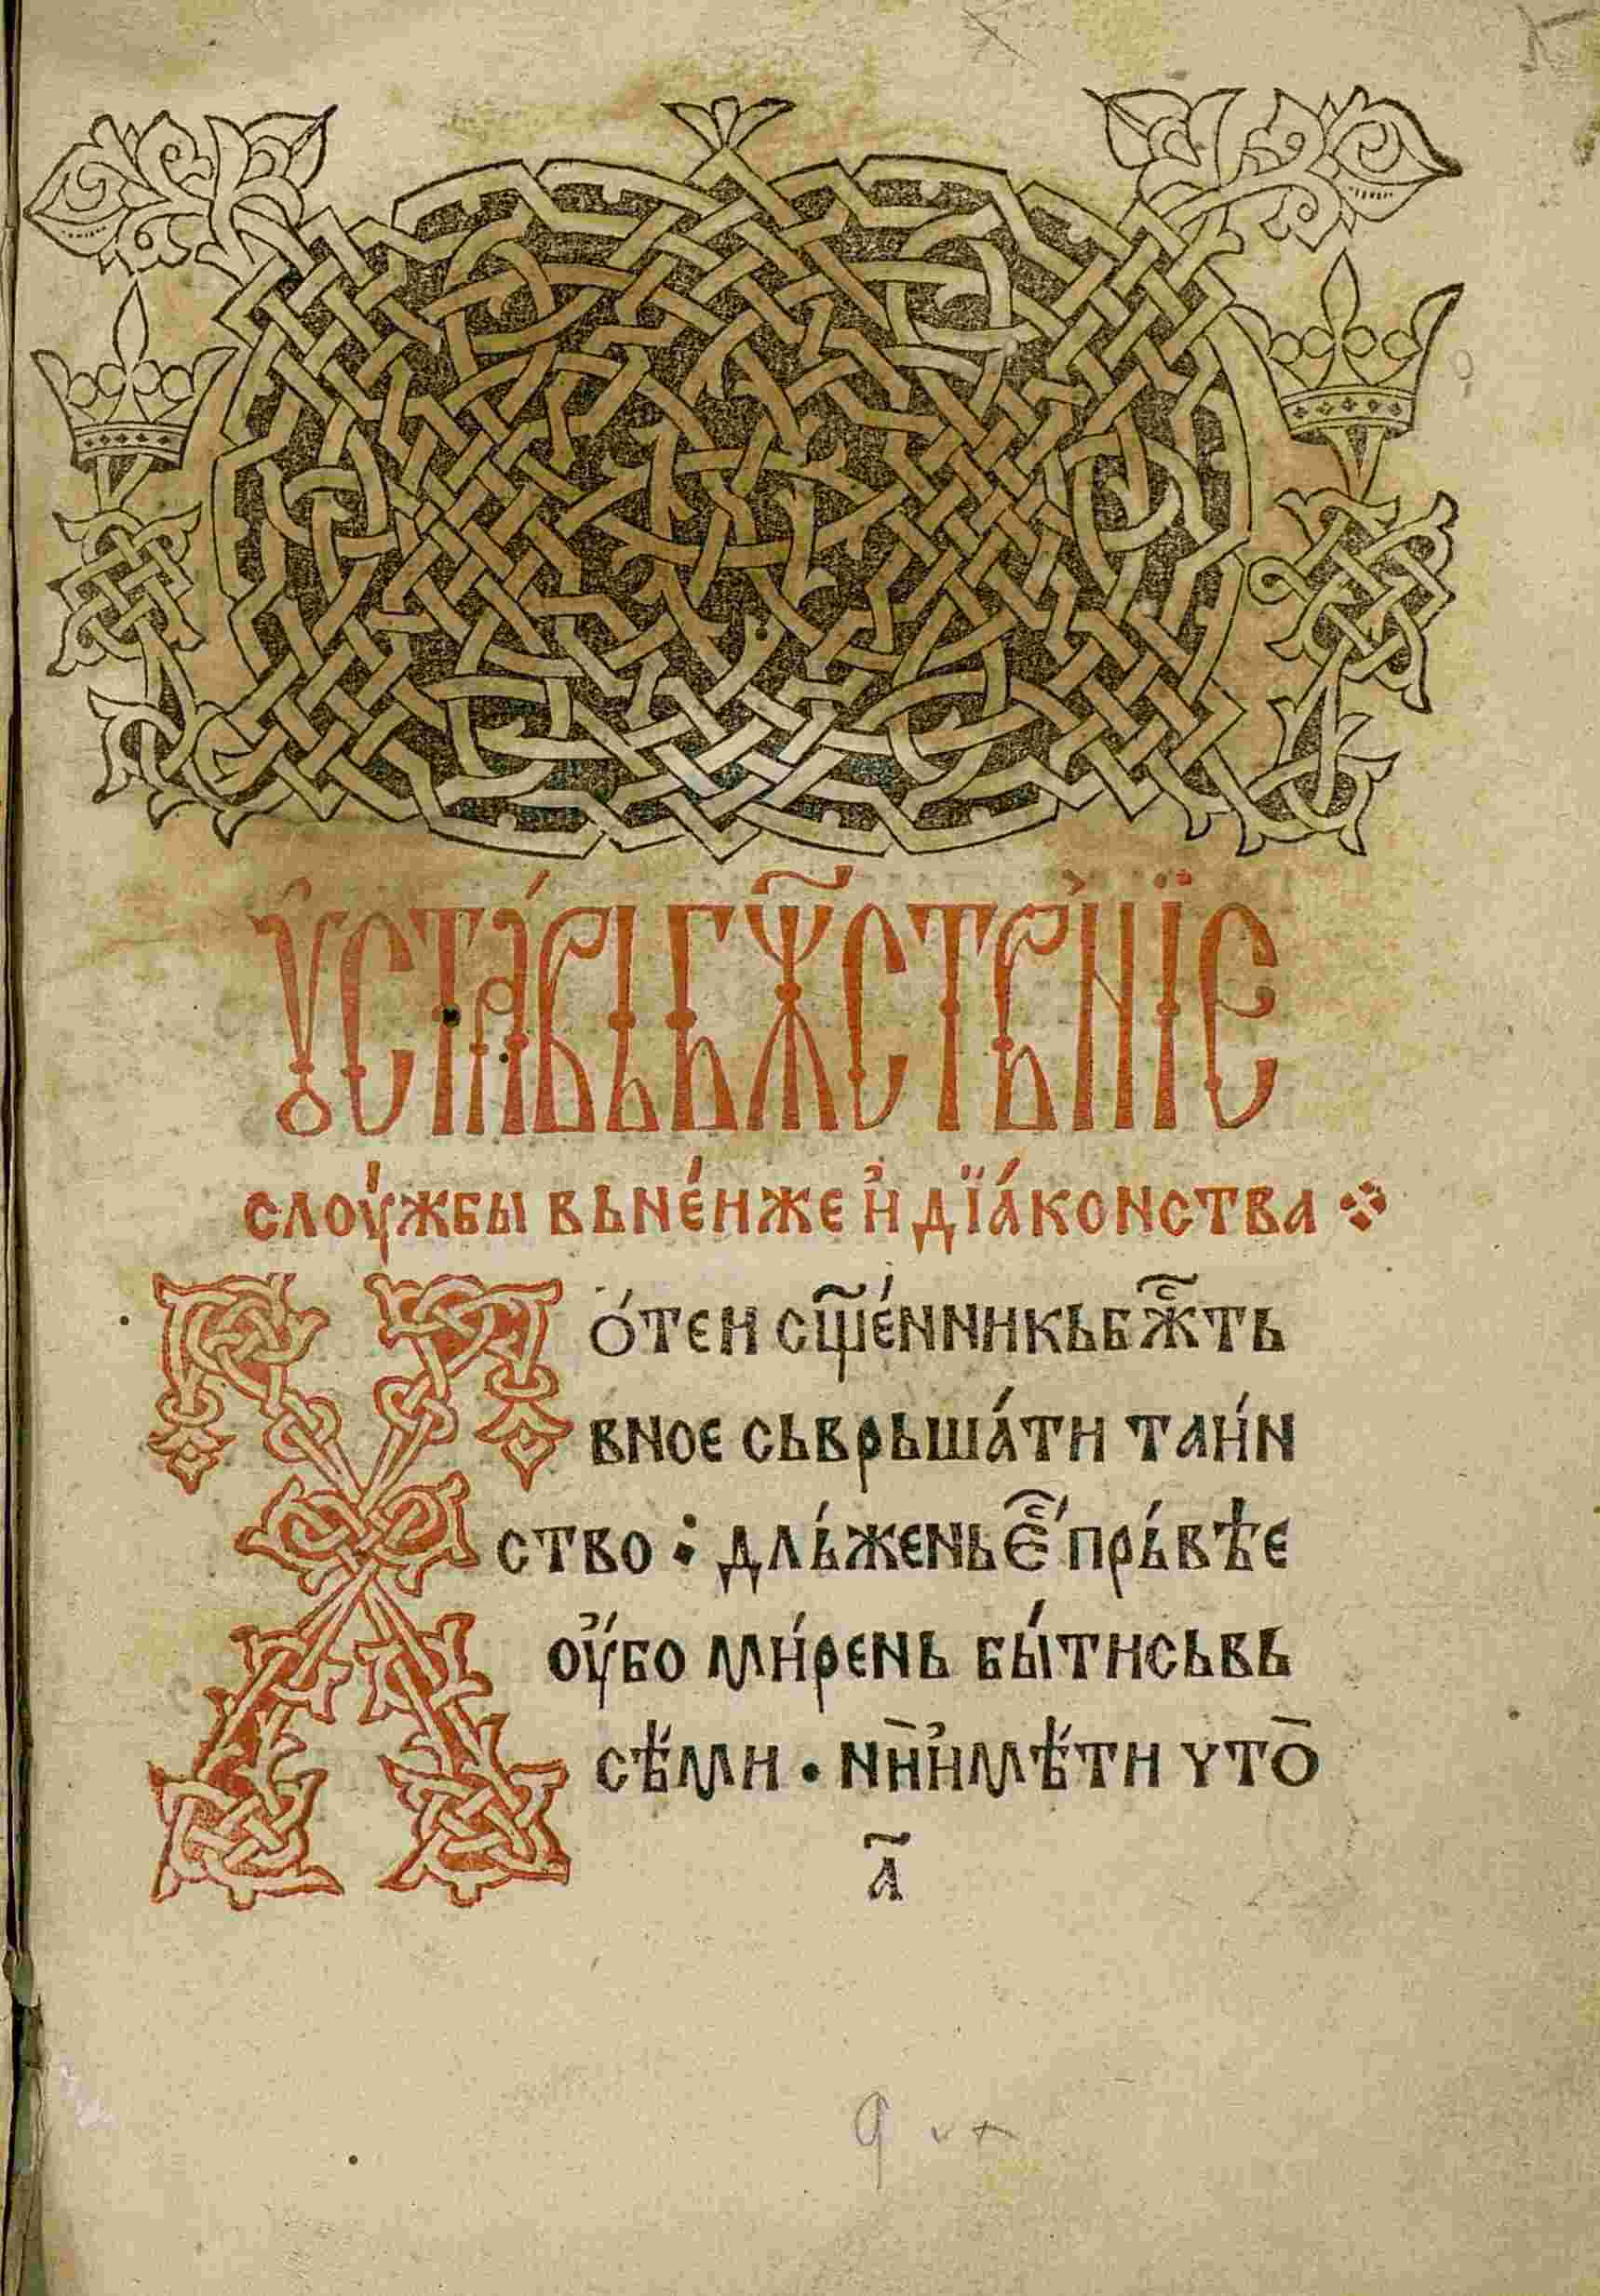 Ѹ҆ста́вь бж҃ствьнїе
слоу́жбы вьне́иже и҆ дїа́конства
Хо́теи сщ҃е́нникь бж҇ть
вное сьврьша́ти таи́н
ство : длъ́жень е҇' прь́вѣе
оу҆́бо ми́рень бы́ти сь вь
сѣ́ми · ни҆ и҆мѣ́ти что̄
а҃